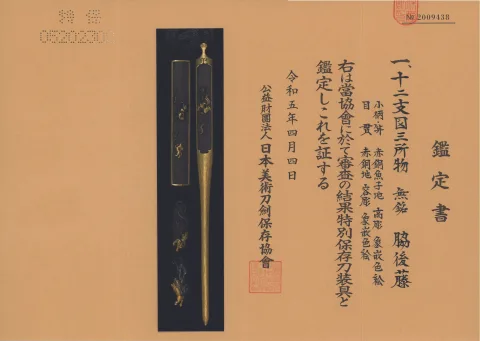 特保
0520230
№ 2009438
鑑定書
一、十二支図三所物 無銘 脇後藤
小柄・笄 赤銅魚子地 高彫 象嵌色絵
目貫 赤銅地 容彫 象嵌色絵
右は當協會に於て審査の結果特別保存刀装具と
鑑定しこれを証する
令和五年四月四日
公益財團法人 日本美術刀劍保存協會